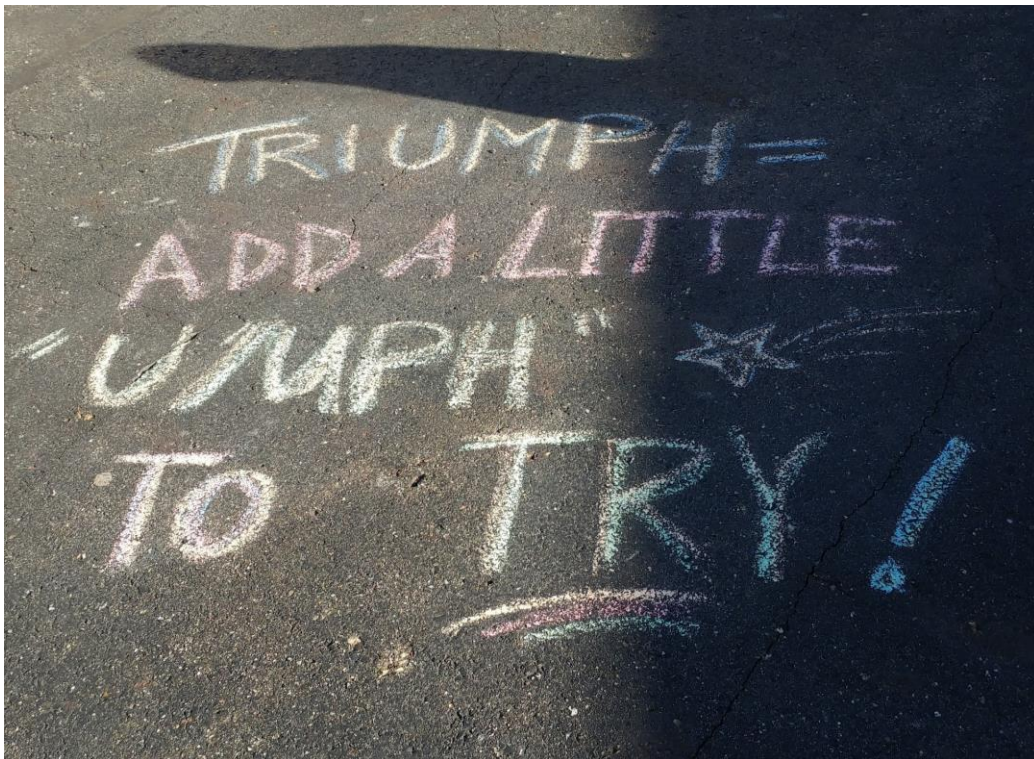 TRIUMPH =
ADD A LITTLE
"UMPH"
TO TRY!